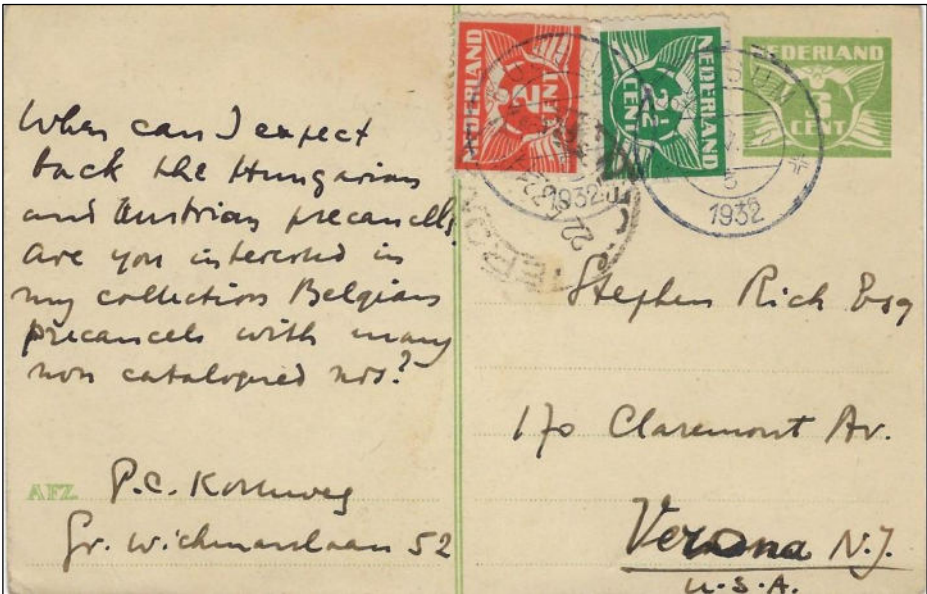 When can I expect
back the Hungarian
and Austrian precancels?
Are you interested in
my collection Belgian
precancels with many
non catalogued nos?
AFZ. P.C. Korteweg
Gr. Wichmanlaan 52
NEDERLAND
2 CENT
NEDERLAND
2½ CENT
NEDERLAND
3
CENT
1932
1932
Stephen Rich Esq
170 Claremont Av.
Verona N.J.
U.S.A.